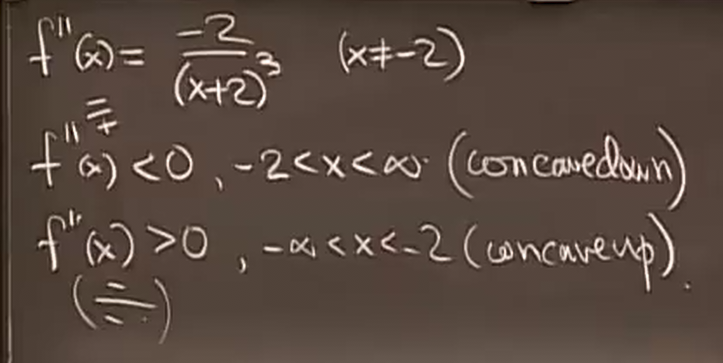 f''(x) = -2/(x+2)³ (x≠-2)
-/+
f''(x) < 0, -2<x<∞ (concave down)
f''(x) > 0, -∞<x<-2 (concave up).
(-/-)